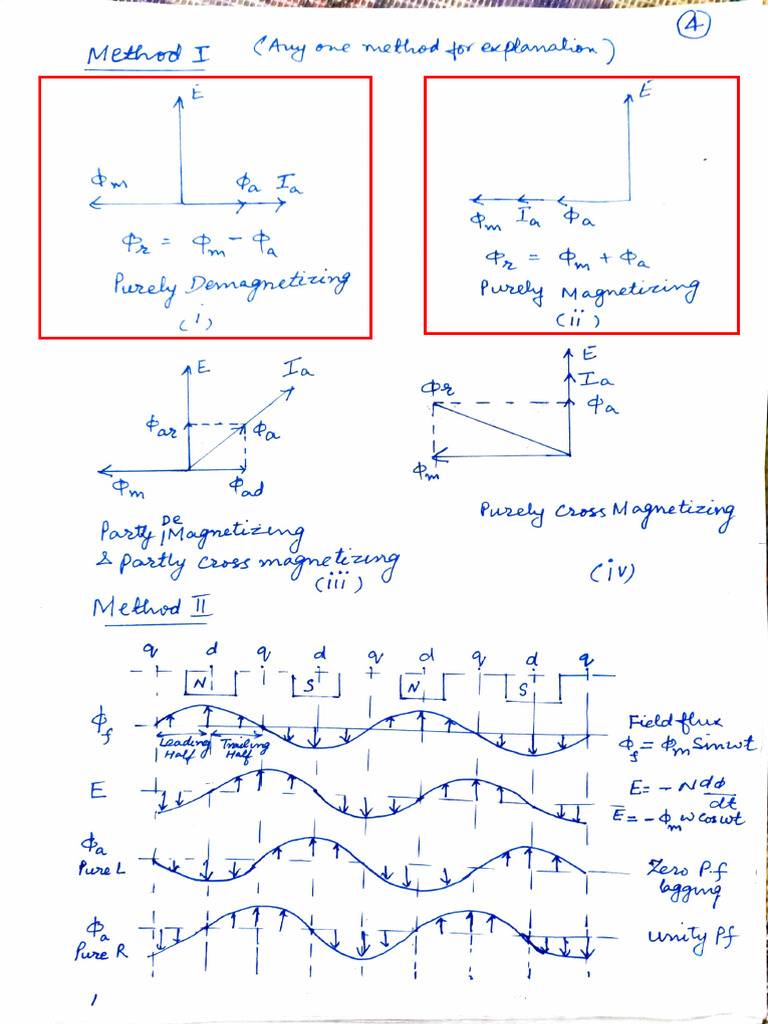 4
Method I (Any one method for explanation)
E
Φm Φa Ia
Φr = Φm − Φa
Purely Demagnetizing
(i)
E
Φm Ia Φa
Φr = Φm + Φa
Purely Magnetizing
(ii)
E Ia
Φar Φa
Φm Φad
Partly DeMagnetizing
& partly cross magnetizing
(iii)
E
Ia
Φr Φa
Φm
Purely Cross Magnetizing
(iv)
Method II
q d q d q d q d q
N S N S
Φf
Leading Half Trailing Half
Field flux
Φf = Φm Sinωt
E
E = − N dΦ/dt
E̅ = − Φm ω cosωt
Φa
Pure L
Zero P.f
lagging
Φa
Pure R
unity Pf
1